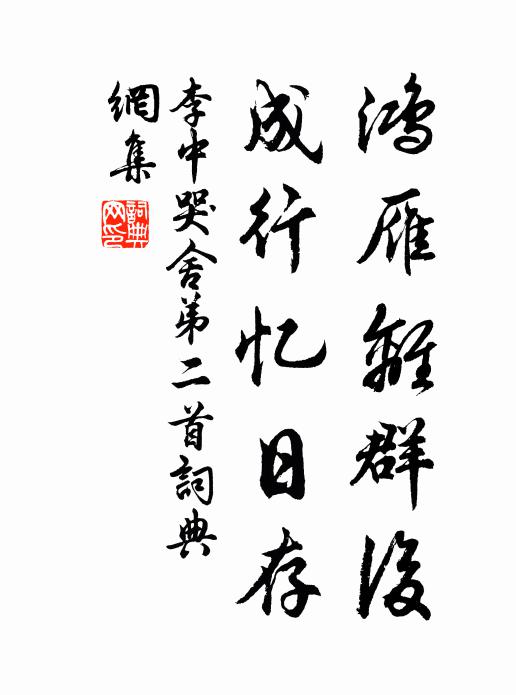 鸿雁離群後
成行忆日存
李中哭舍弟二首詞典
網集
詞典
网印